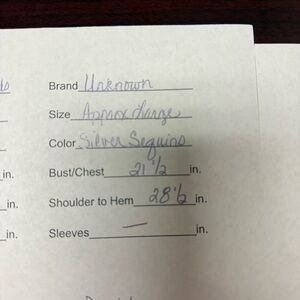 Brand Unknown
Size Approx Large
Color Silver Sequins
in. Bust/Chest 21 1/2 in.
in. Shoulder to Hem 28 1/2 in.
in. Sleeves — in.